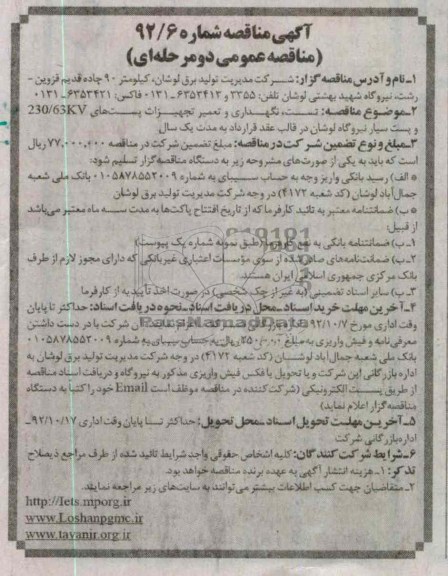 آگهی مناقصه شماره ۹۲/۶
(مناقصه عمومی دو مرحله‌ای)
۱ـ نام و آدرس مناقصه گزار: شرکت مدیریت تولید برق لوشان، کیلومتر ۹۰ جاده قدیم قزوین -
رشت، نیروگاه شهید بهشتی لوشان تلفن: ۳۳۵۵ و ۶۳۵۳۴۱۳ـ۰۱۳۱ فاکس: ۶۳۵۳۴۲۱ـ۰۱۳۱
۲ـ موضوع مناقصه: تست، نگهداری و تعمیر تجهیزات پست‌های 230/63KV
و پست سیار نیروگاه لوشان در قالب عقد قرارداد به مدت یک سال
۳ـ مبلغ و نوع تضمین شرکت در مناقصه: مبلغ تضمین شرکت در مناقصه ۷۷.۰۰۰.۰۰۰ ریال
است که باید به یکی از صورت‌های مشروحه زیر به دستگاه مناقصه‌گزار تسلیم شود:
* الف) رسید بانکی واریز وجه به حساب سیبای به شماره ۰۱۰۵۸۷۸۵۵۲۰۰۹ بانک ملی شعبه
جمال‌آباد لوشان (کد شعبه ۴۱۷۲) در وجه شرکت مدیریت تولید برق لوشان
* ب) ضمانتنامه معتبر به تائید کارفرما که از تاریخ افتتاح پاکت‌ها به مدت سه ماه معتبر می‌باشد
از قبیل:
۱ـ ب) ضمانتنامه بانکی به نفع کارفرما (طبق نمونه شماره یک پیوست)
۲ـ ب) ضمانت‌نامه‌های صادر شده از سوی مؤسسات اعتباری غیربانکی که دارای مجوز لازم از طرف
بانک مرکزی جمهوری اسلامی ایران هستند.
۳ـ ب) سایر اسناد تضمینی (به غیر از چک شخصی) در صورت اخذ تأییدیه از کارفرما
۴ـ آخرین مهلت خرید اسناد ـ محل دریافت اسناد ـ نحوه دریافت اسناد: حداکثر تا پایان
وقت اداری مورخ ۹۲/۱۰/۷ آن شرکت با در دست داشتن
معرفی‌نامه و فیش واریزی به مبلغ ریال به حساب سیبای به شماره ۰۱۰۵۸۷۸۵۵۲۰۰۹
بانک ملی شعبه جمال آباد لوشان (کد شعبه ۴۱۷۲) در وجه شرکت مدیریت تولید برق لوشان به
اداره بازرگانی این شرکت و یا تحویل یا فکس فیش واریزی مذکور به نیروگاه و دریافت اسناد مناقصه
از طریق پست الکترونیکی (شرکت‌کننده در مناقصه موظف است Email خود را کتباً به دستگاه
مناقصه‌گزار اعلام نماید)
۵ـ آخرین مهلت تحویل اسناد ـ محل تحویل: حداکثر تا پایان وقت اداری ۹۲/۱۰/۱۷ـ
اداره بازرگانی شرکت
۶ـ شرایط شرکت کنندگان: کلیه اشخاص حقوقی واجد شرایط تائید شده از طرف مراجع ذیصلاح
تذکر: ۱ـ هزینه انتشار آگهی به عهده برنده مناقصه خواهد بود.
۲ـ متقاضیان جهت کسب اطلاعات بیشتر می‌توانند به سایت‌های زیر مراجعه نمایند.
http://Iets.mporg.ir
www.Loshanpgmc.ir
www.tavanir.org.ir